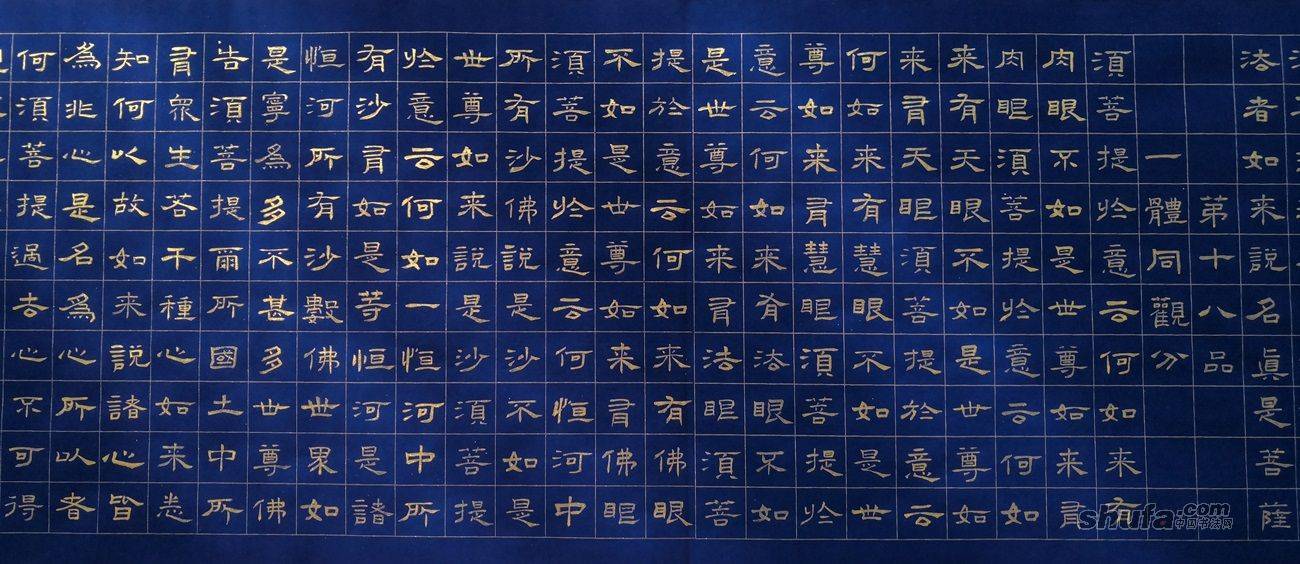 法者如来說名真是菩薩
第十八品
一體同觀分
須菩提於意云何如来有
肉眼不如是世尊如来有
肉眼須菩提於意云何如
来有天眼不如是世尊如
来有天眼須菩提於意云
何如来有慧眼不如是世
尊如来有慧眼須菩提於
意云何如来有法眼不如
是世尊如来有法眼須菩
提於意云何如来有佛眼
不如是世尊如来有佛眼
須菩提於意云何恒河中
所有沙佛說是沙不如是
世尊如来說是沙須菩提
於意云何如一恒河中所
有沙有如是等恒河是諸
恒河所有沙數佛世界如
是寧為多不甚多世尊佛
告須菩提爾所國土中所
有眾生若干種心如来悉
知何以故如来說諸心皆
為非心是名為心所以者
何須菩提過去心不可得
shufa.com
中国书法网